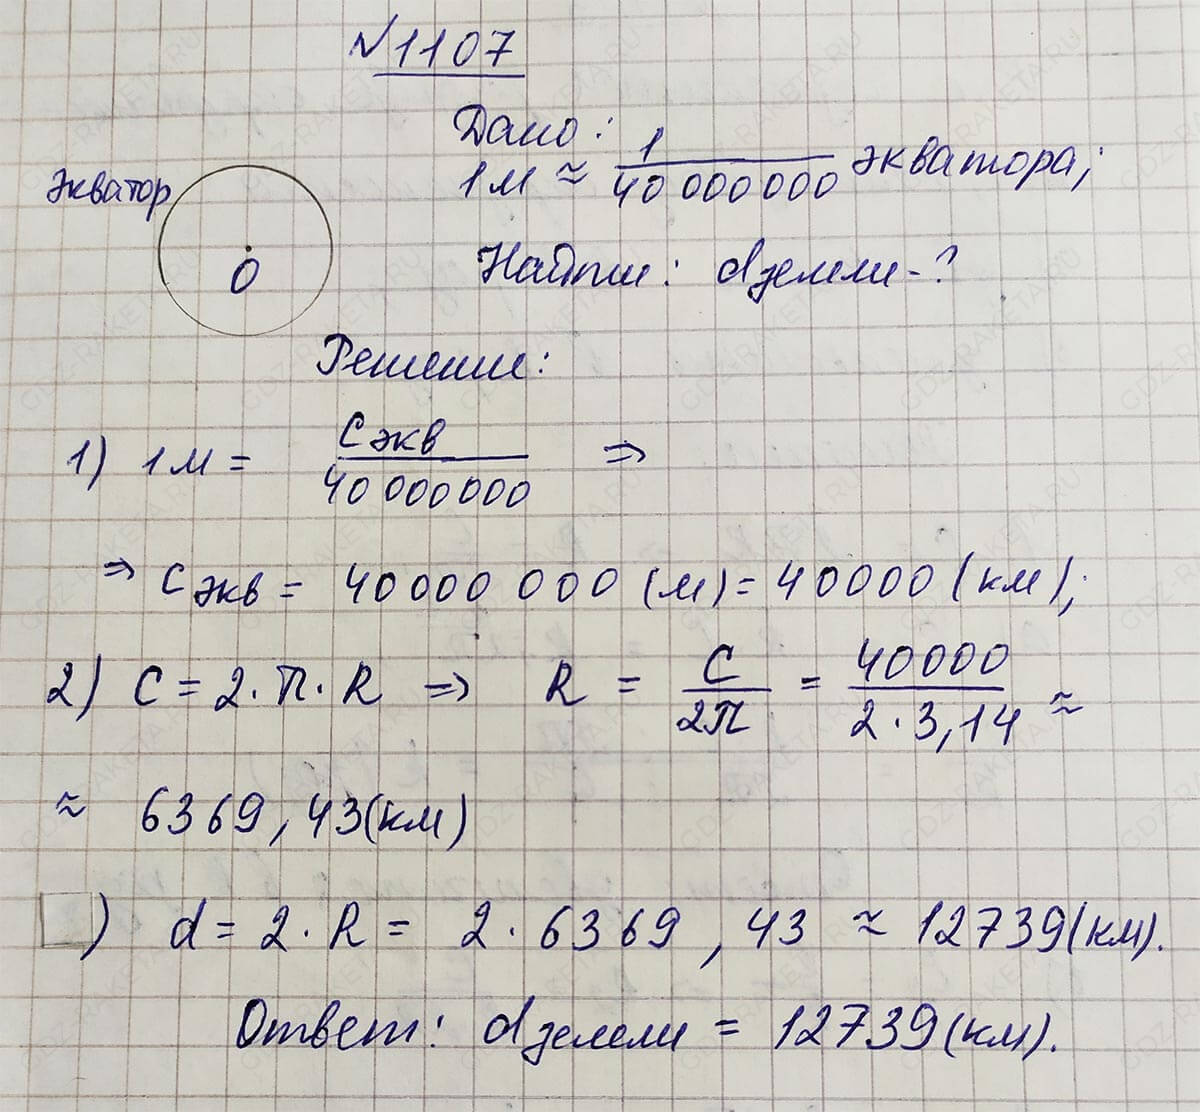 №1107
Дано:
1м ≈ 1/40 000 000 экватора;
экватор
O
Найти: dземли - ?
Решение:
1) 1м = Cэкв/40 000 000 ⇒
⇒ Cэкв = 40000 000 (м) = 40000 (км);
2) C = 2·π·R ⇒ R = C/2π = 40000/2·3,14 ≈
≈ 6369,43(км)
) d = 2·R = 2·6369,43 ≈ 12739(км).
Ответ: dземли = 12739(км).
GDZ-RAKETA.RU